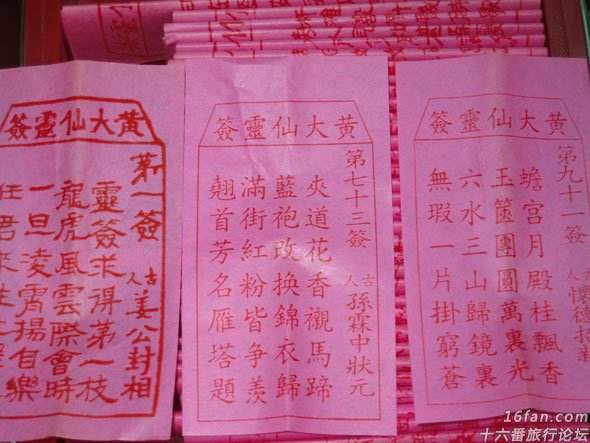 黃大仙靈簽
第一簽
古人
姜公封相
靈簽求得第一枝
龍虎風雲際會時
一旦凌霄揚自樂
任君來往
黃大仙靈簽
第七十三簽
古人
孫霖中狀元
夾道花香襯馬蹄
藍袍改換錦衣歸
滿街紅粉皆爭羨
翹首芳名雁塔題
黃大仙靈簽
第九十一簽
古人
懷德招
蟾宮月殿桂飄香
玉篋團圓萬裏光
六水三山歸鏡裏
無瑕一片掛窮蒼
16fan.com
十六番旅行论坛